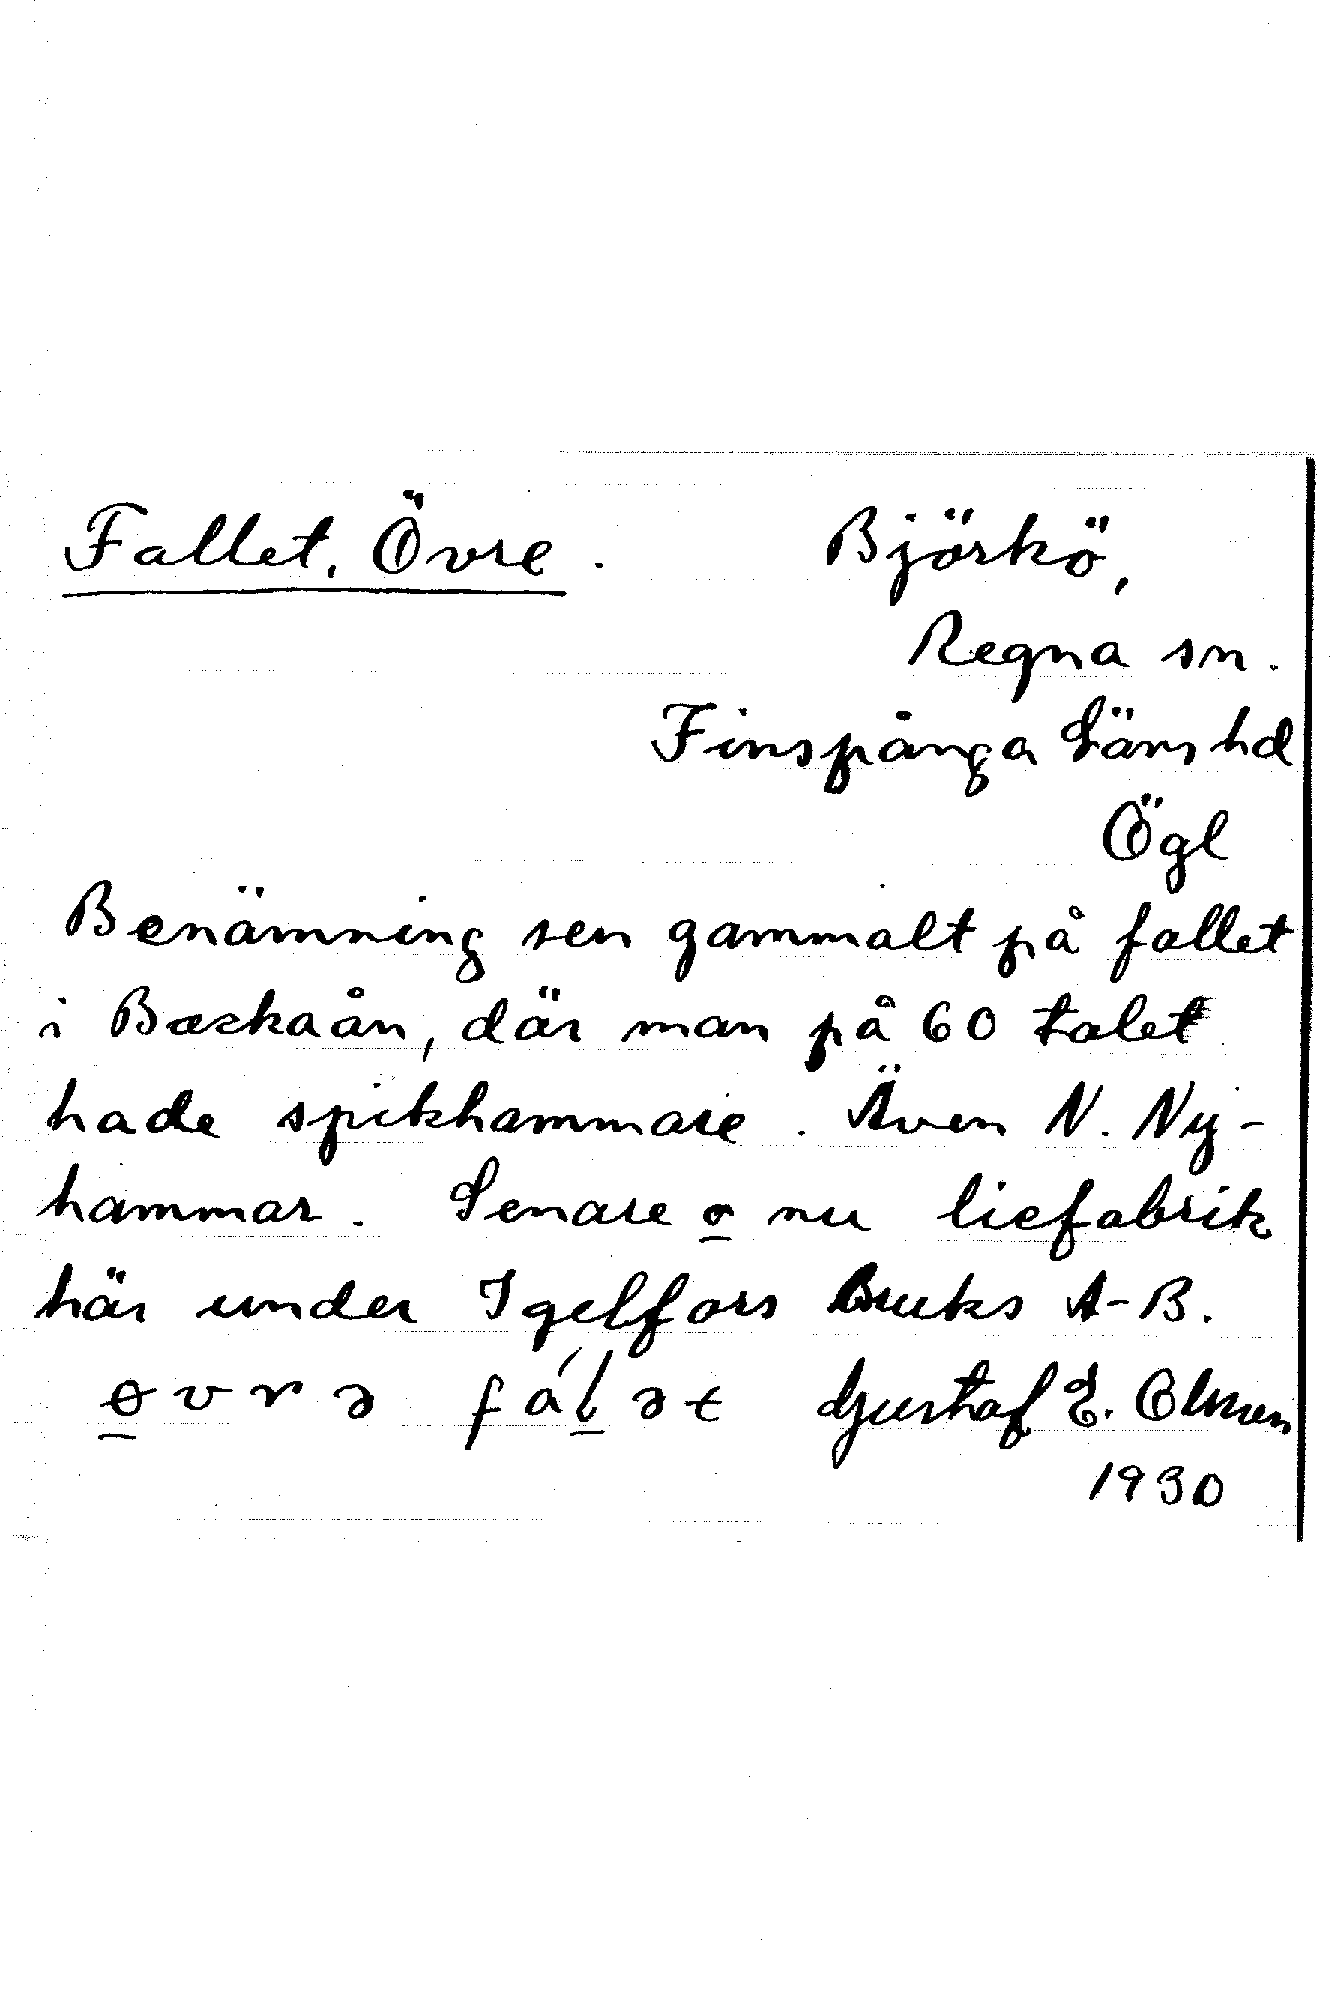 Fallet, Övre. Björkö,
Regna sn.
Finspånga Läns hd
Ögl
Benämning sen gammalt på fallet
i Bæskaån, där man på 60 talet
hade spikhammare. Även N. Ny-
hammar. Senare o nu liefabrik
här under Igelfors Bruks A-B.
øvrə fálət Gustaf E. Olsson
1930